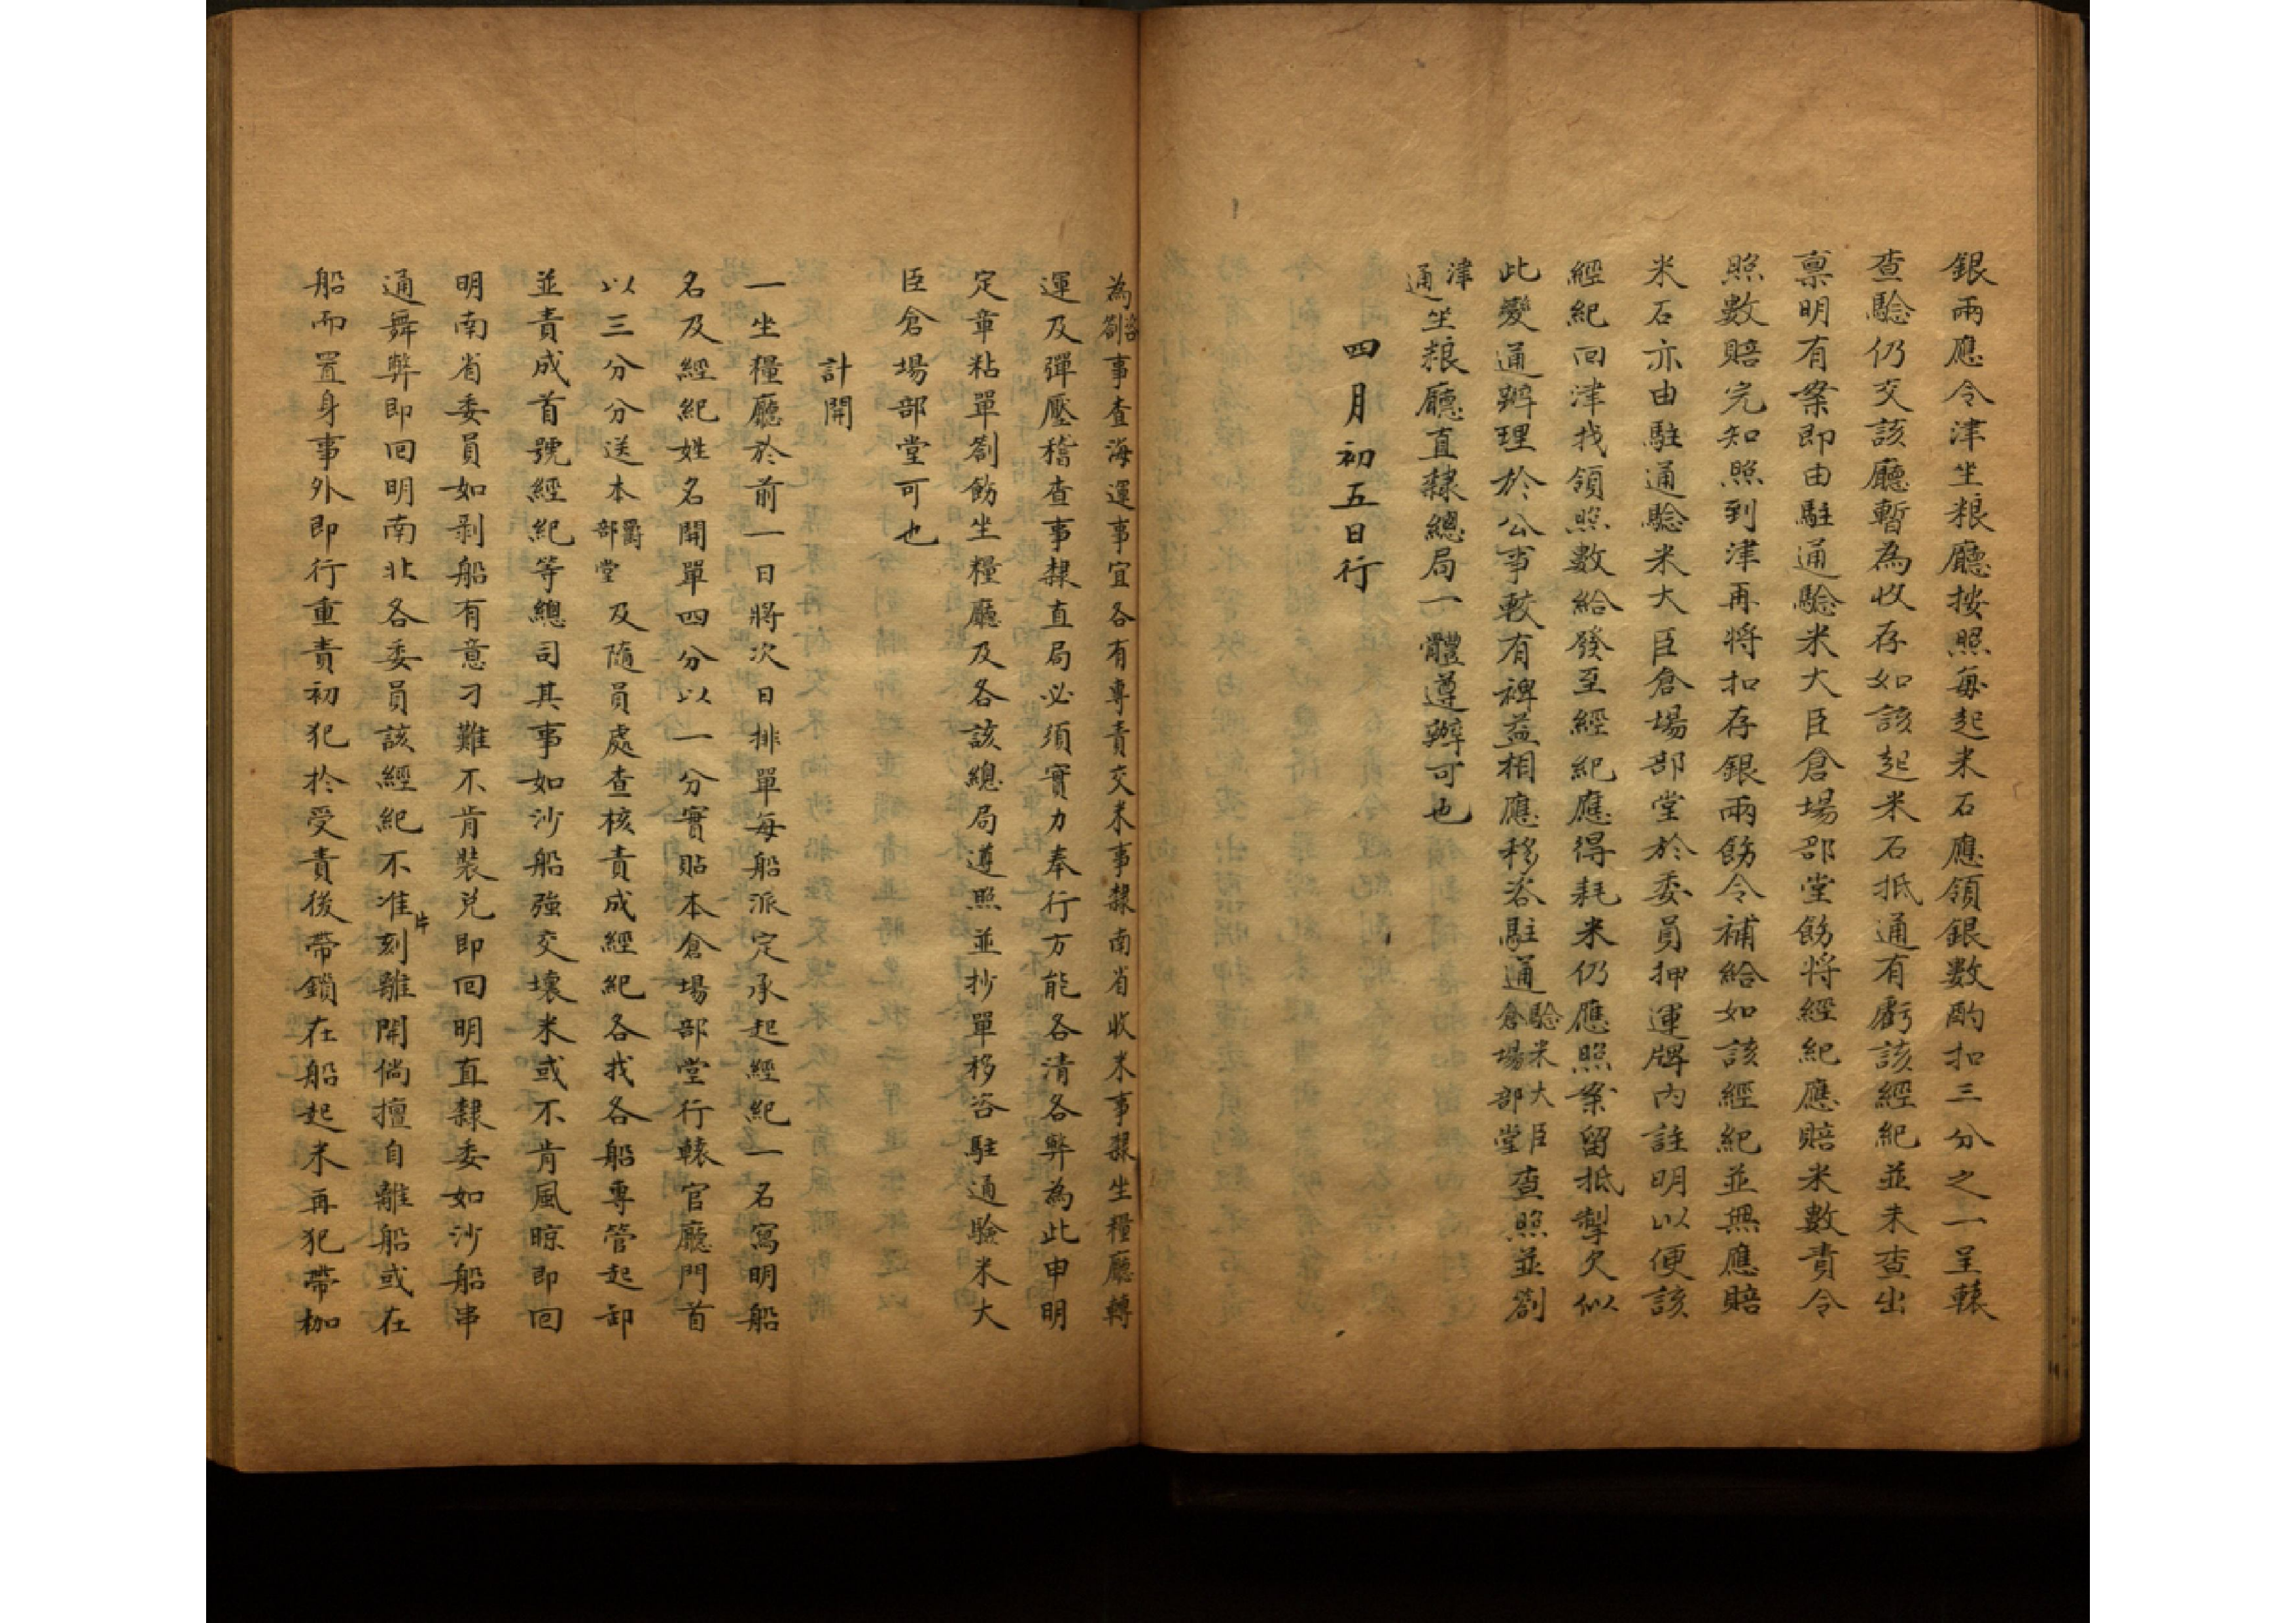 銀兩應令津坐粮廳按照每起米石應領銀數酌扣三分之一呈轅
查驗仍交該廳暫為收存如該起米石抵通有虧該經紀並未查出
稟明有案即由駐通驗米大臣倉場部堂飭將經紀應賠米數責令
照數賠完知照到津再將扣存銀兩飭令補給如該經紀並無應賠
米石亦由駐通驗米大臣倉場部堂於委員押運牌內註明以便該
經紀回津找領照數給發至經紀應得耗米仍應照案留抵掣欠似
此變通辦理於公事較有裨益相應移咨駐通驗米大臣倉場部堂查照並劄
津通坐粮廳直隸總局一體遵辦可也
四月初五日行
為咨劄事查海運事宜各有專責交米事隸南省收米事隸坐糧廳轉
運及彈壓稽查事隸直局必須實力奉行方能各清各弊為此申明
定章粘單劄飭坐糧廳及各該總局遵照並抄單移咨駐通驗米大
臣倉場部堂可也
計開
一坐糧廳於前一日將次日排單每船派定承起經紀一名寫明船
名及經紀姓名開單四分以一分實貼本倉場部堂行轅官廳門首
以三分分送本爵部堂及隨員處查核責成經紀各找各船專管起卸
並責成首號經紀等總司其事如沙船強交壞米或不肯風晾即回
明南省委員如剥船有意刁難不肯裝兌即回明直隸委如沙船串
通舞弊即回明南北各委員該經紀不准片刻離開倘擅自離船或在
船而置身事外即行重責初犯於受責後帶鎖在船起米再犯帶枷